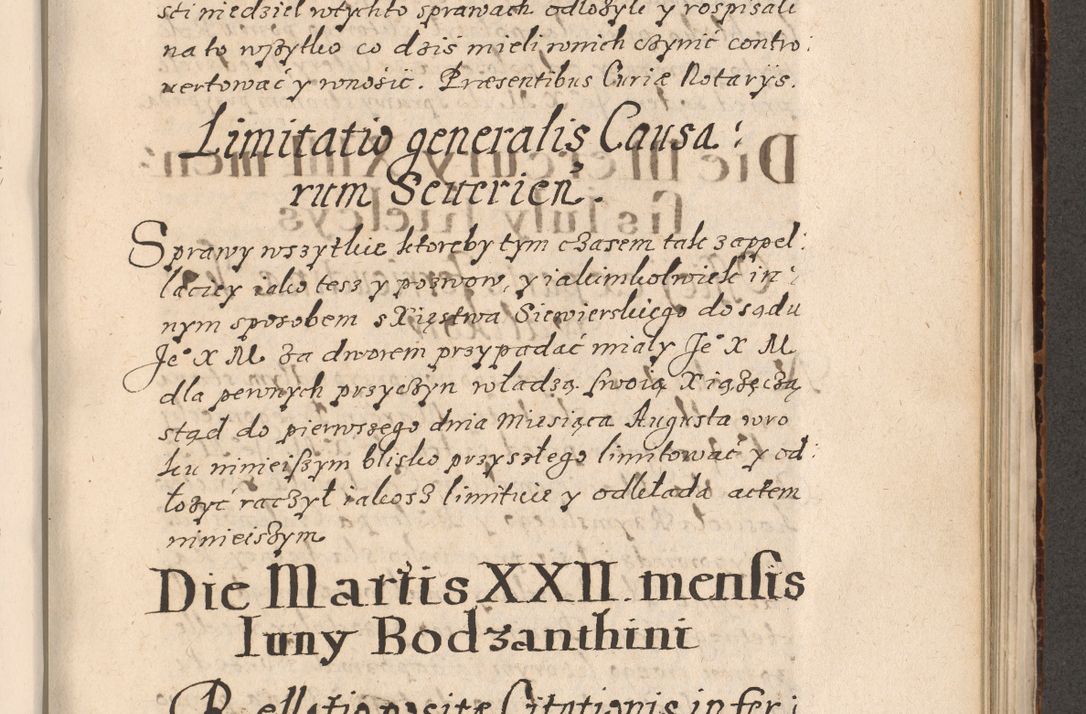 sti niedziel wtychto sprawach odłożyle y rospisali
na to wszytko co dziś mieli wnich czynić contro:
uertować y wnosić. Præsentibus Curiæ Notarÿs.
Limitatio generalis Causa:
rum Seuerień.
Sprawy wszytkie ktoreby tym czasem tak z appel:
laciey iako tesz y pozwow, y iakimkolwiek in:
nym sposobem z Xięstwa Siewierskiego do sądu
Je° X M. za dworem przypadać miały Je° X M.
dla pewnych przyczyn władzą swoią Xiążęczą
stąd do pierwszego dnia Miesiąca Augusta wro
ku ninieiszym blisko przyszłego limitować y od:
łożyć raczył iakosz limituie y odkłada actem
ninieiszym
Die Martis XXII. mensis
Iuny Bodzanthini
Rellatio positæ Citationis in fer: